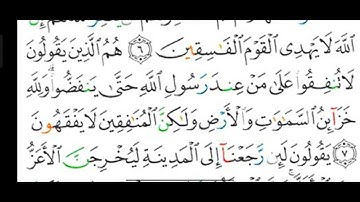 اللَّهَ لَا يَهْدِى ٱلْقَوْمَ ٱلْفَٰسِقِينَ ٦ هُمُ ٱلَّذِينَ يَقُولُونَ
لَا تُنفِقُوا۟ عَلَىٰ مَنْ عِندَ رَسُولِ ٱللَّهِ حَتَّىٰ يَنفَضُّوا۟ ۗ وَلِلَّهِ
خَزَآئِنُ ٱلسَّمَٰوَٰتِ وَٱلْأَرْضِ وَلَٰكِنَّ ٱلْمُنَٰفِقِينَ لَا يَفْقَهُونَ
٧ يَقُولُونَ لَئِن رَّجَعْنَآ إِلَى ٱلْمَدِينَةِ لَيُخْرِجَنَّ ٱلْأَعَزُّ